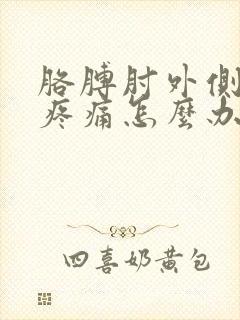 胳膊肘外側
疼痛怎麼办
四喜奶黄包